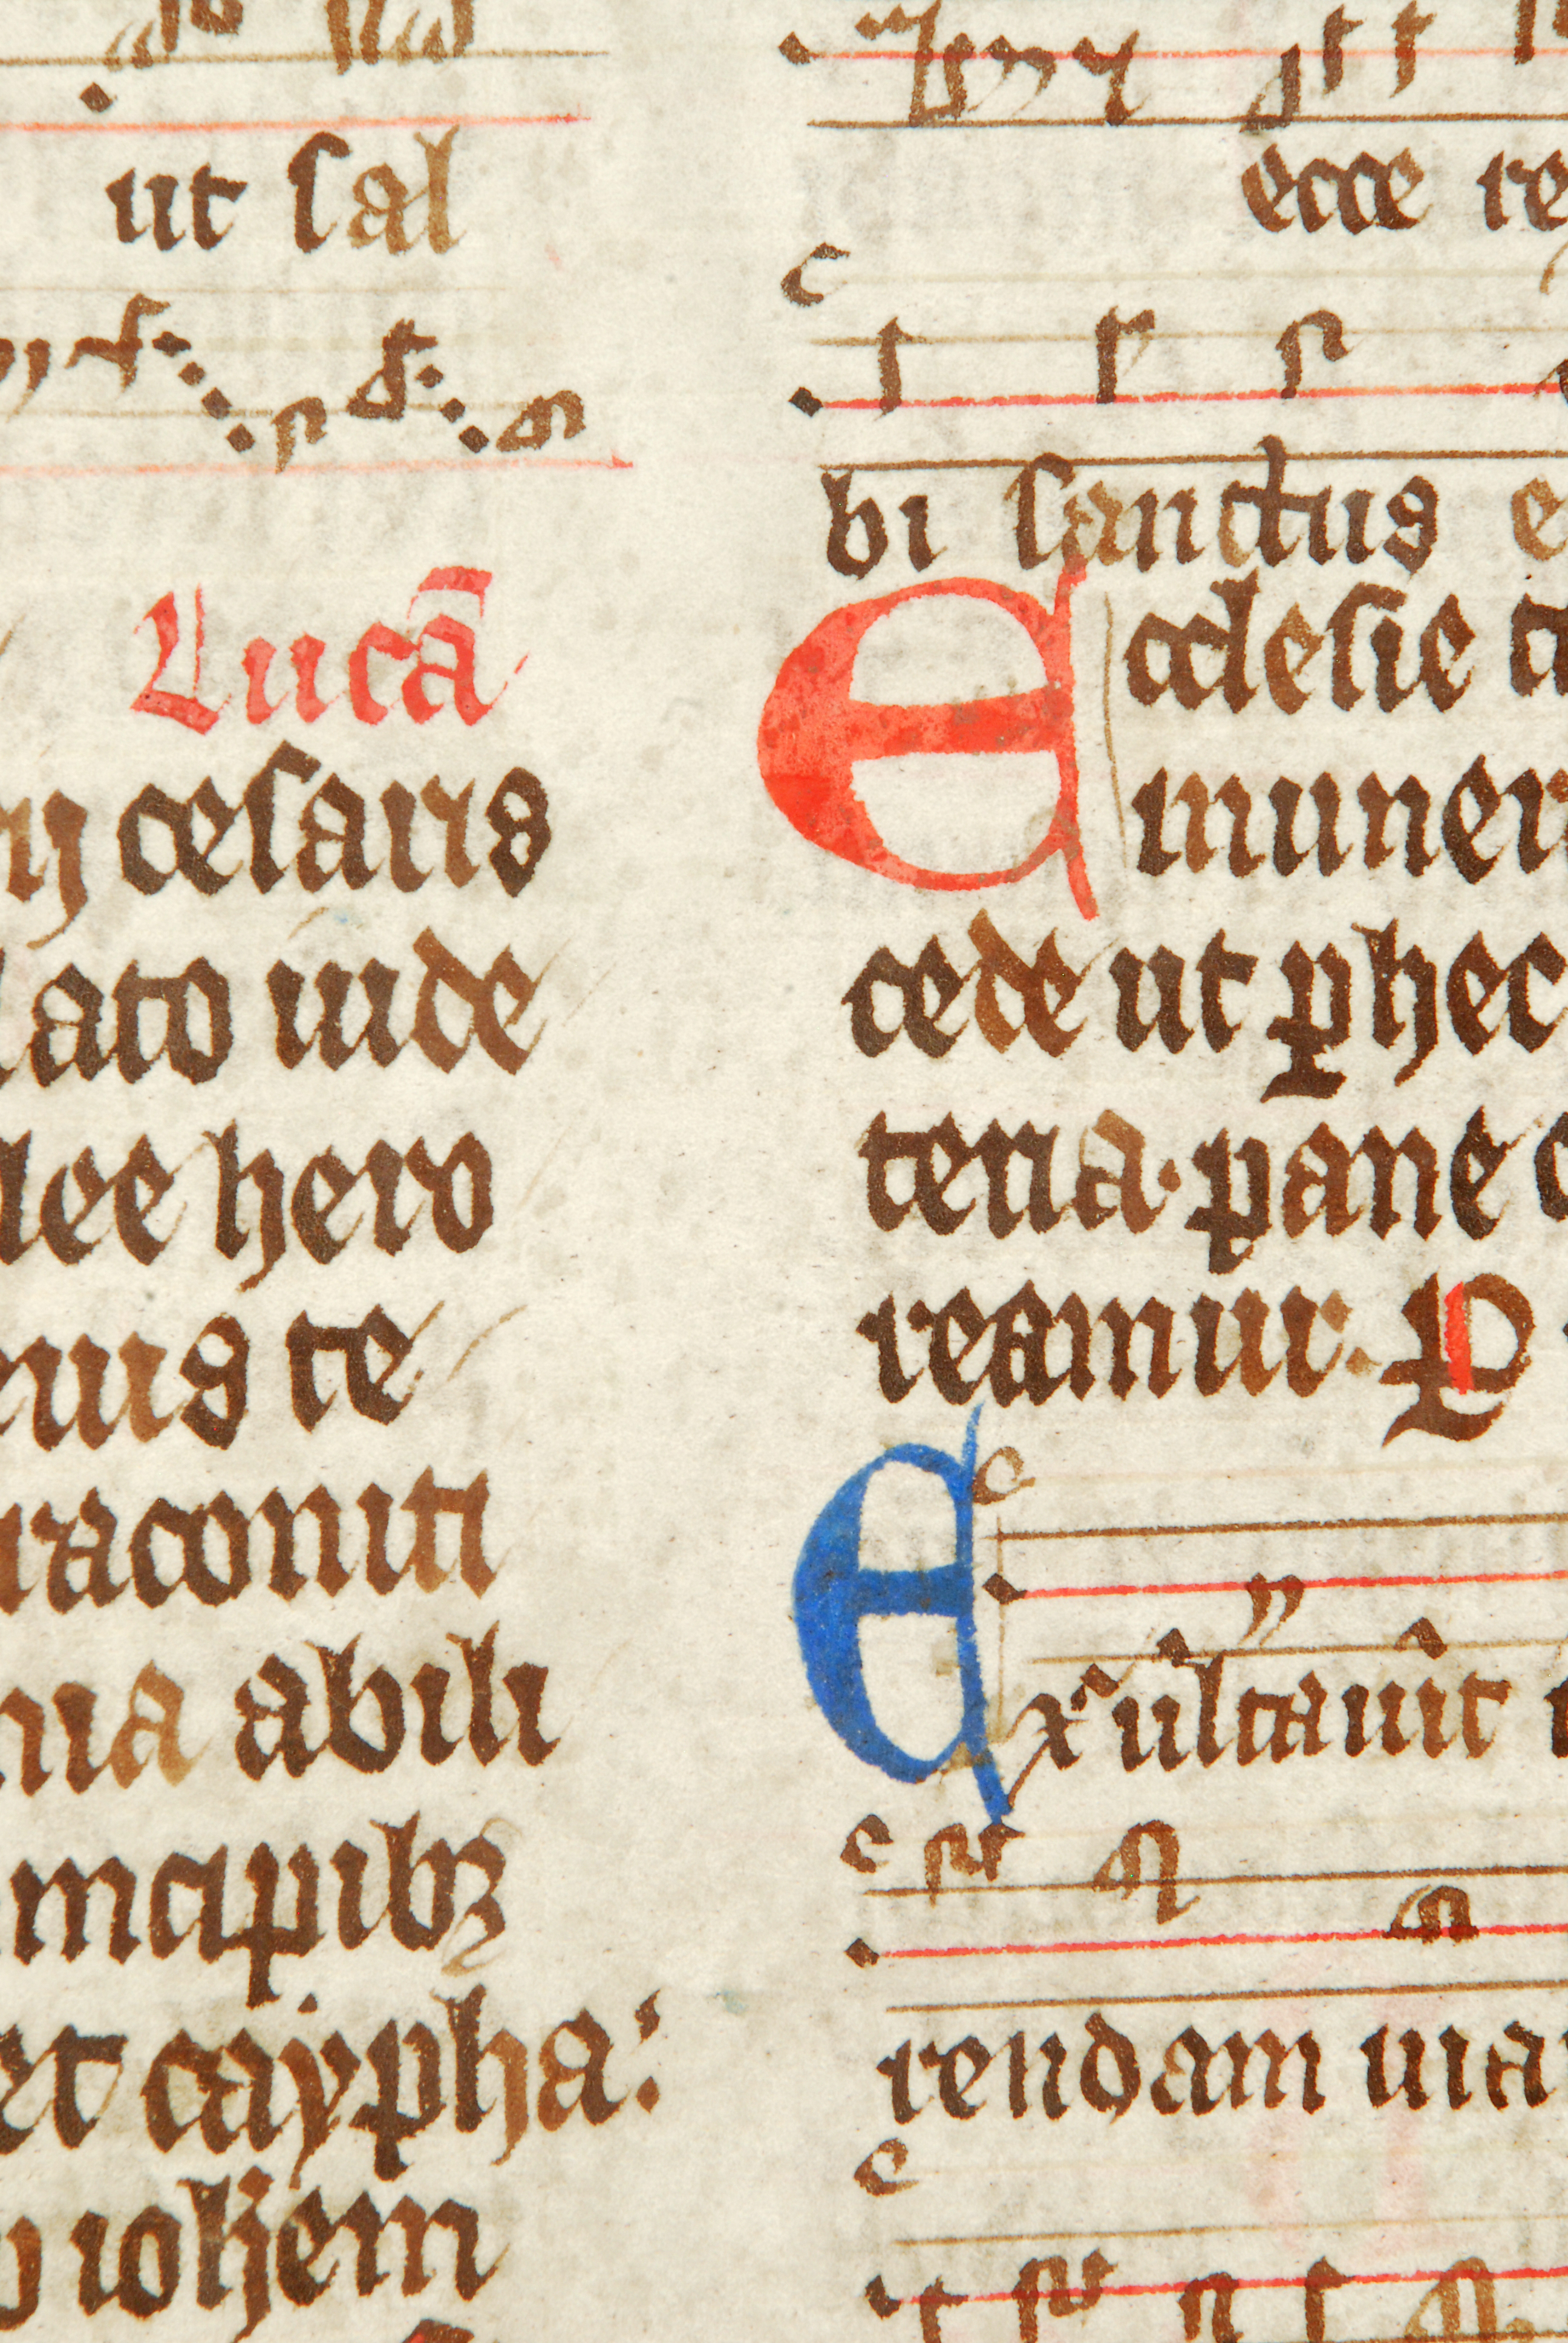 ut sal
Lucā
cesaris
lato iude
lee hero
nus te
raconiti
nia abili
incipibꝫ
et caypha:
ioħem
ecce re
bi sanctus e
Ecclesie
muner
cede ut ꝓhec
tena. pane
reamur. P
Exultauit
rendam uia